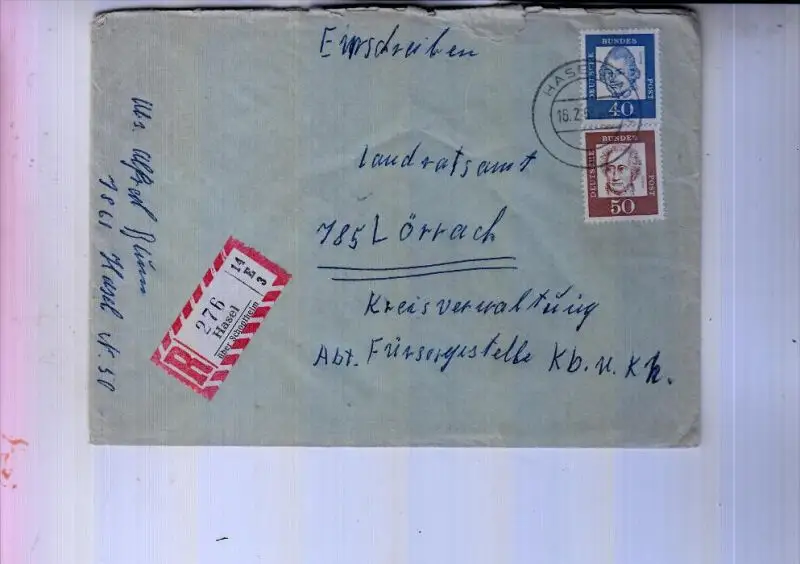 Einschreiben
HASEL
16.2.6
DEUTSCHE BUNDES POST
40
DEUTSCHE BUNDES POST
50
Landratsamt
785 Lörrach
Kreisverwaltung
Abt. Fürsorgestelle Kb. u. Kh.
Abs. Alfred
7861 Hasel N. 50
R
276
Hasel
über Schopfheim
14
E
3